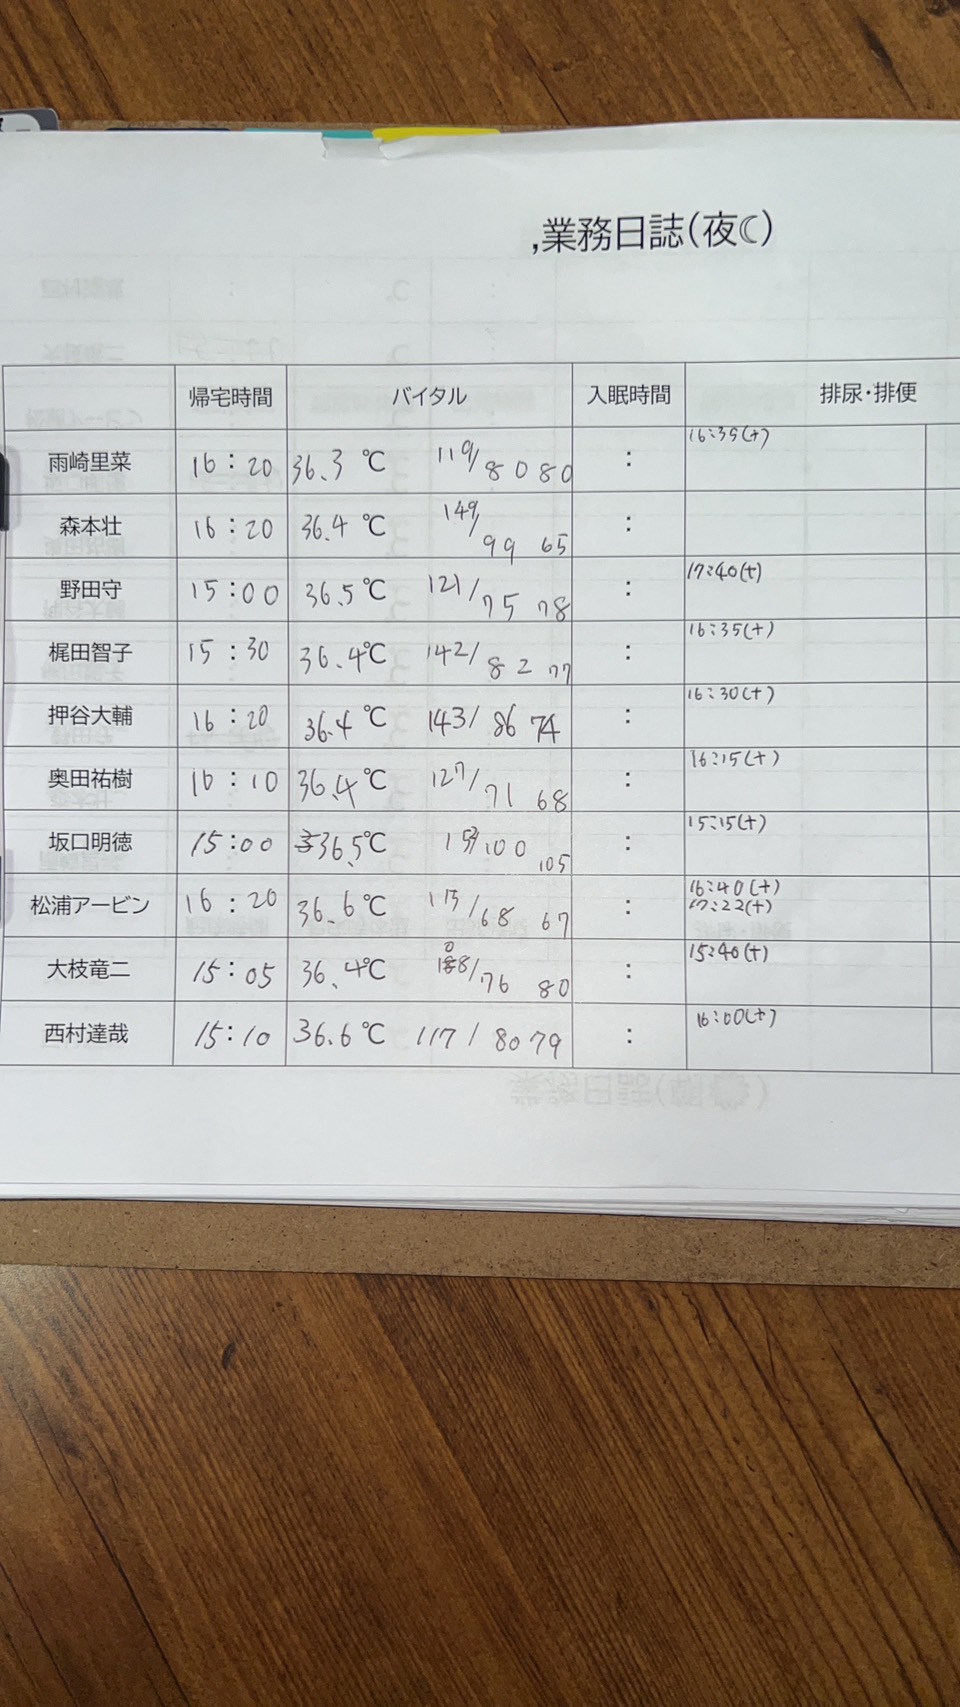 ,業務日誌(夜☾)
帰宅時間 バイタル 入眠時間 排尿・排便
雨崎里菜 16:20 36.3℃ 119/80 80 : 16:35(+)
森本壮 16:20 36.4℃ 149/99 65 :
野田守 15:00 36.5℃ 121/75 78 : 17:40(+)
梶田智子 15:30 36.4℃ 142/82 77 : 16:35(+)
押谷大輔 16:20 36.4℃ 143/86 74 : 16:30(+)
奥田祐樹 16:10 36.4℃ 127/71 68 : 16:15(+)
坂口明徳 15:00 36.5℃ /100 105 : 15:15(+)
松浦アービン 16:20 36.6℃ 113/68 67 : 16:40(+)
17:22(+)
大枝竜二 15:05 36.4℃ /76 80 : 15:40(+)
西村達哉 15:10 36.6℃ 117/80 79 : 16:00(+)